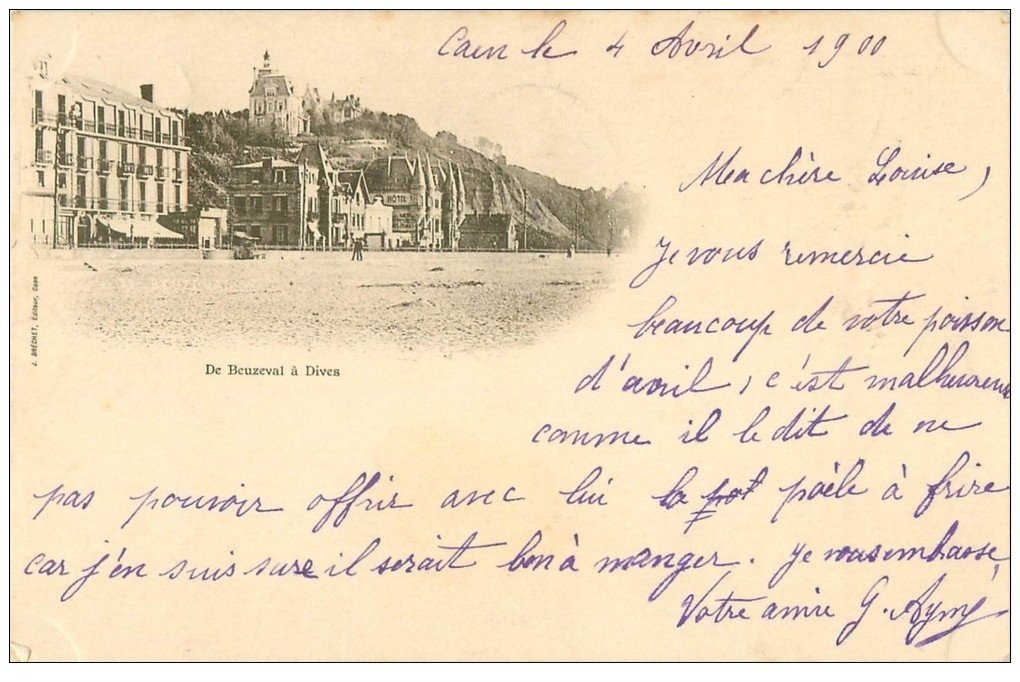 Caen le 4 Avril 1900
HÔTEL
J. BRÉCHET, Editeur, Caen
De Beuzeval à Dives
Ma chère Louise,
Je vous remercie
beaucoup de votre poisson
d'avril, c'est malheureux
comme il le dit de ne
pas pouvoir offrir avec lui la poële à frire
car j'en suis sure il serait bon à manger. Je vous embrasse,
Votre amie G. Aymé